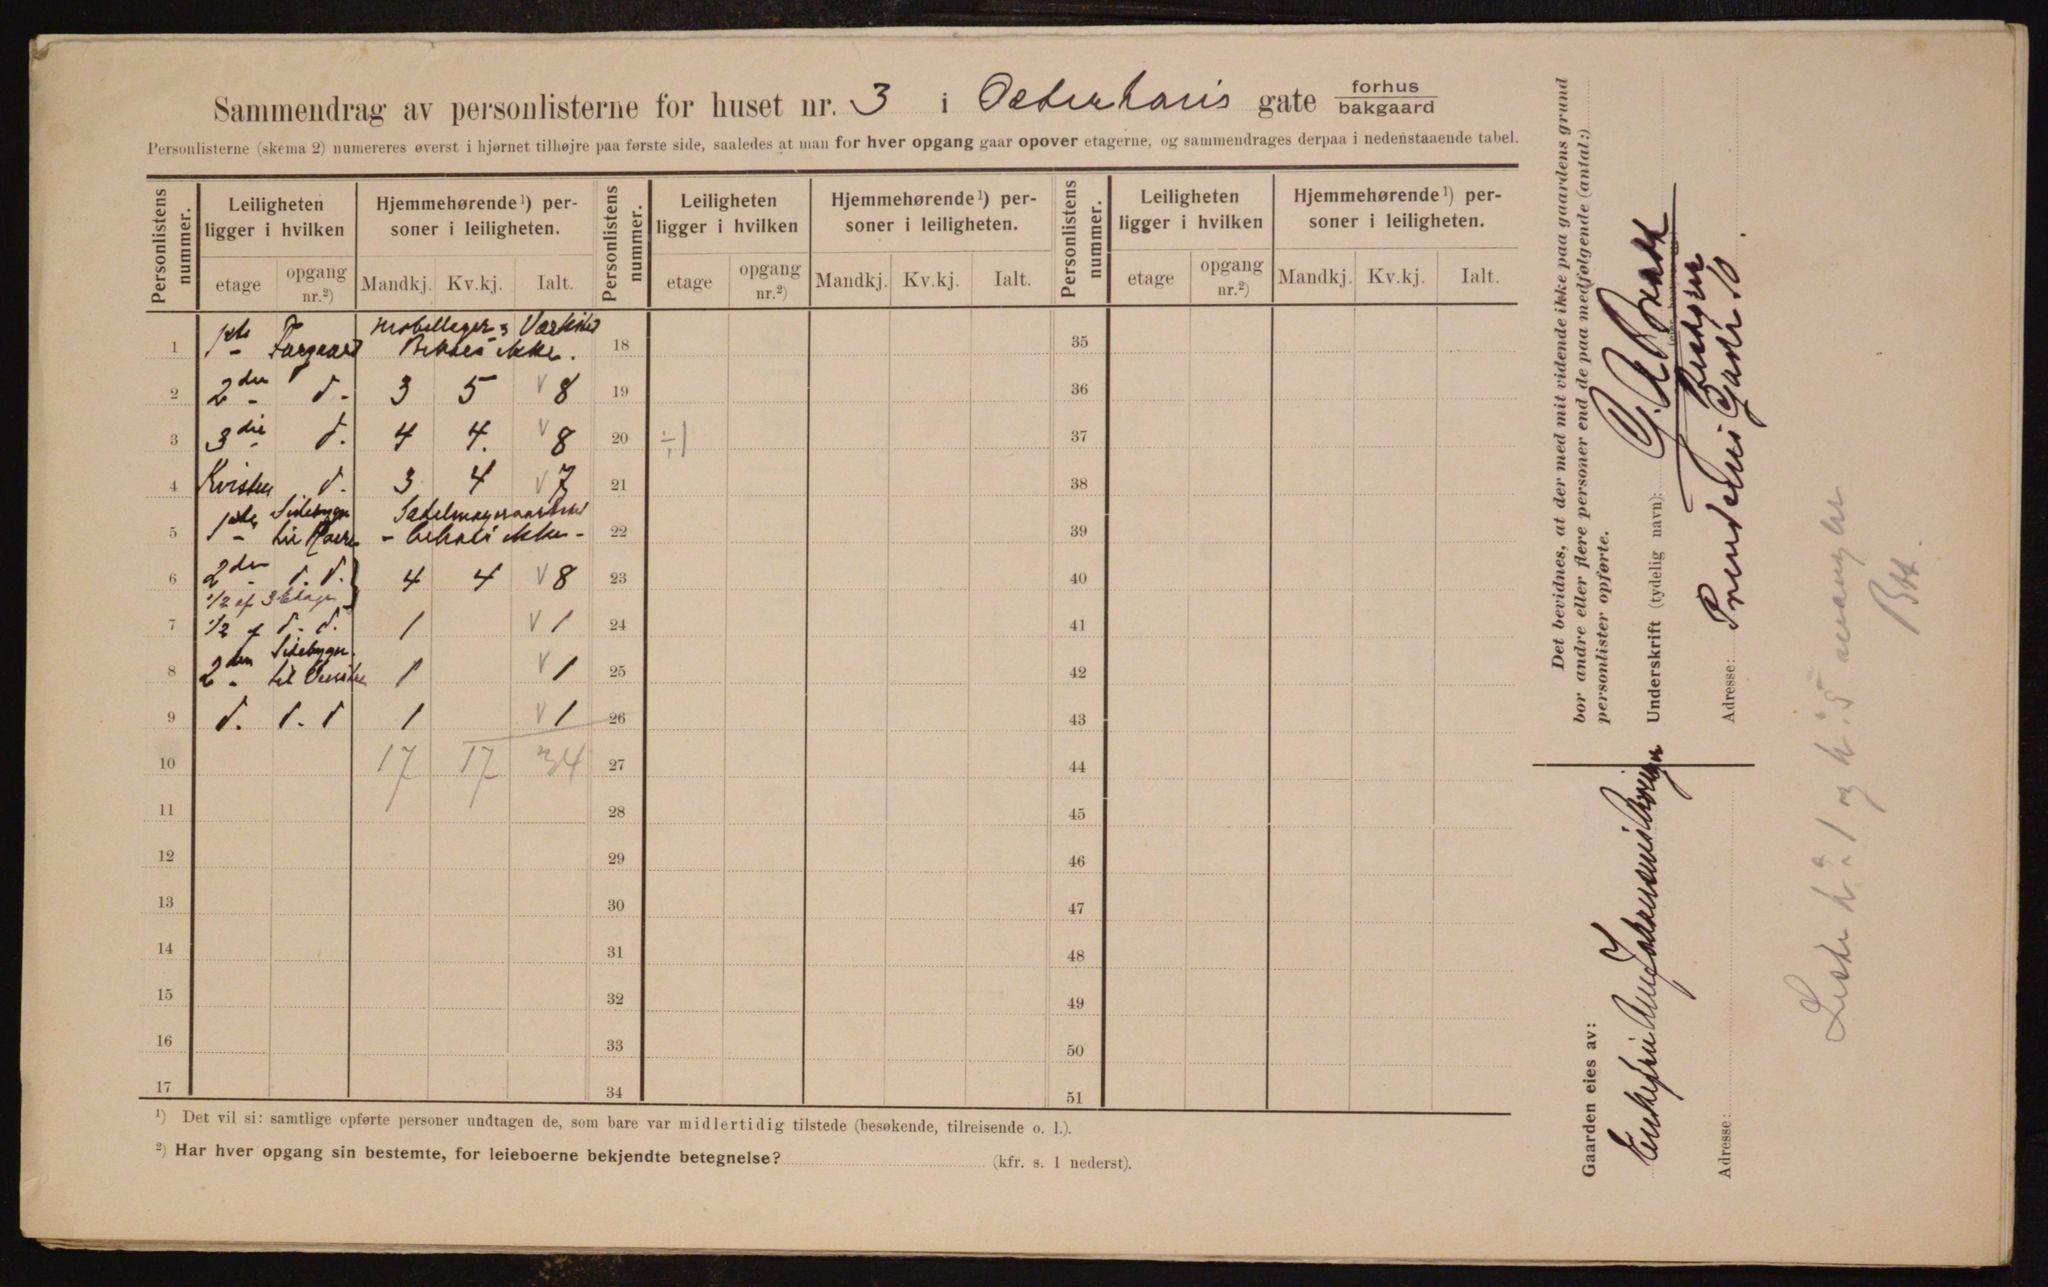 Sammendrag av personlisterne for huset nr. 3 i Osterhaus gate forhus bakgaard
Personlisterne (skema 2) numereres øverst i hjørnet tilhøjre paa første side, saaledes at man for hver opgang gaar opover etagerne, og sammendrages derpaa i nedenstaaende tabel.
Personlistens nummer. Leiligheten ligger i hvilken Hjemmehørende ¹) personer i leiligheten. Personlistens nummer. Leiligheten ligger i hvilken Hjemmehørende ¹) personer i leiligheten. Personlistens nummer. Leiligheten ligger i hvilken Hjemmehørende ¹) personer i leiligheten.
etage opgang nr.²) Mandkj. Kv.kj. Ialt. etage opgang nr.²) Mandkj. Kv.kj. Ialt. etage opgang nr.²) Mandkj. Kv.kj. Ialt.
1 1ste Forgaard Beboes ikke. 18 35
2 2den d. 3 5 v 8 19 36
3 3die d. 4 4. v 8 20 ÷1 37
4 Kvisten d. 3 4 v 7 21 38
5 1ste Sidebygn - beboes ikke - 22 39
6 2den d. d. 4 4 v 8 23 40
1/2 af 3 Etage
7 1/2 af d. d. 1 v 1 24 41
8 2den Sidebygn. til Venstre 1 v 1 25 42
9 d. d. d 1 v 1 26 43
10 17 17 34 27 44
11 28 45
12 29 46
13 30 47
14 31 48
15 32 49
16 33 50
17 34 51
¹) Det vil si: samtlige opførte personer undtagen de, som bare var midlertidig tilstede (besøkende, tilreisende o. l.).
²) Har hver opgang sin bestemte, for leieboerne bekjendte betegnelse? (kfr. s. 1 nederst).
Det bevidnes, at der med mit vidende ikke paa gaardens grund
bor andre eller flere personer end de paa medfølgende (antal:)
personlister opførte.
Underskrift (tydelig navn):
Adresse:
Gaarden eies av:
Enkefru
Adresse:
Liste nº 1 og nº 5 mangler